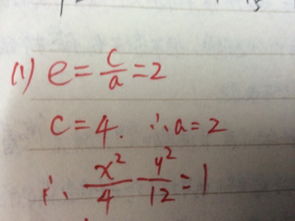 (1) e = c/a = 2
c = 4. ∴ a = 2
∴ x²/4 - y²/12 = 1